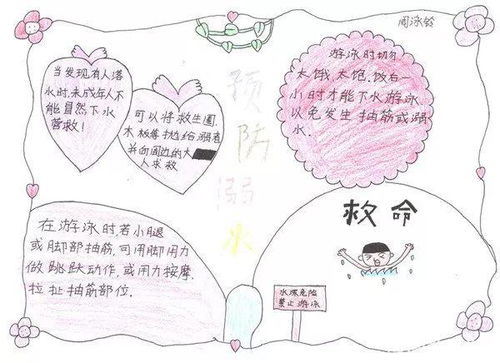 周泳铃
当发现有人落
水时，未成年人不
能冒然下水
营救！
可以将救生圈，
木板等抛给溺者
并向周边的大
人求救
预
防
溺
水
游泳时切勿
太饿、太饱、饭后一
小时才能下水游泳
以免发生抽筋或溺
水．
在游泳时若小腿
或脚部抽筋，可用脚用力
做跳跃动作，或用力按摩、
拉扯抽筋部位．
救命
水深危险
禁止游泳